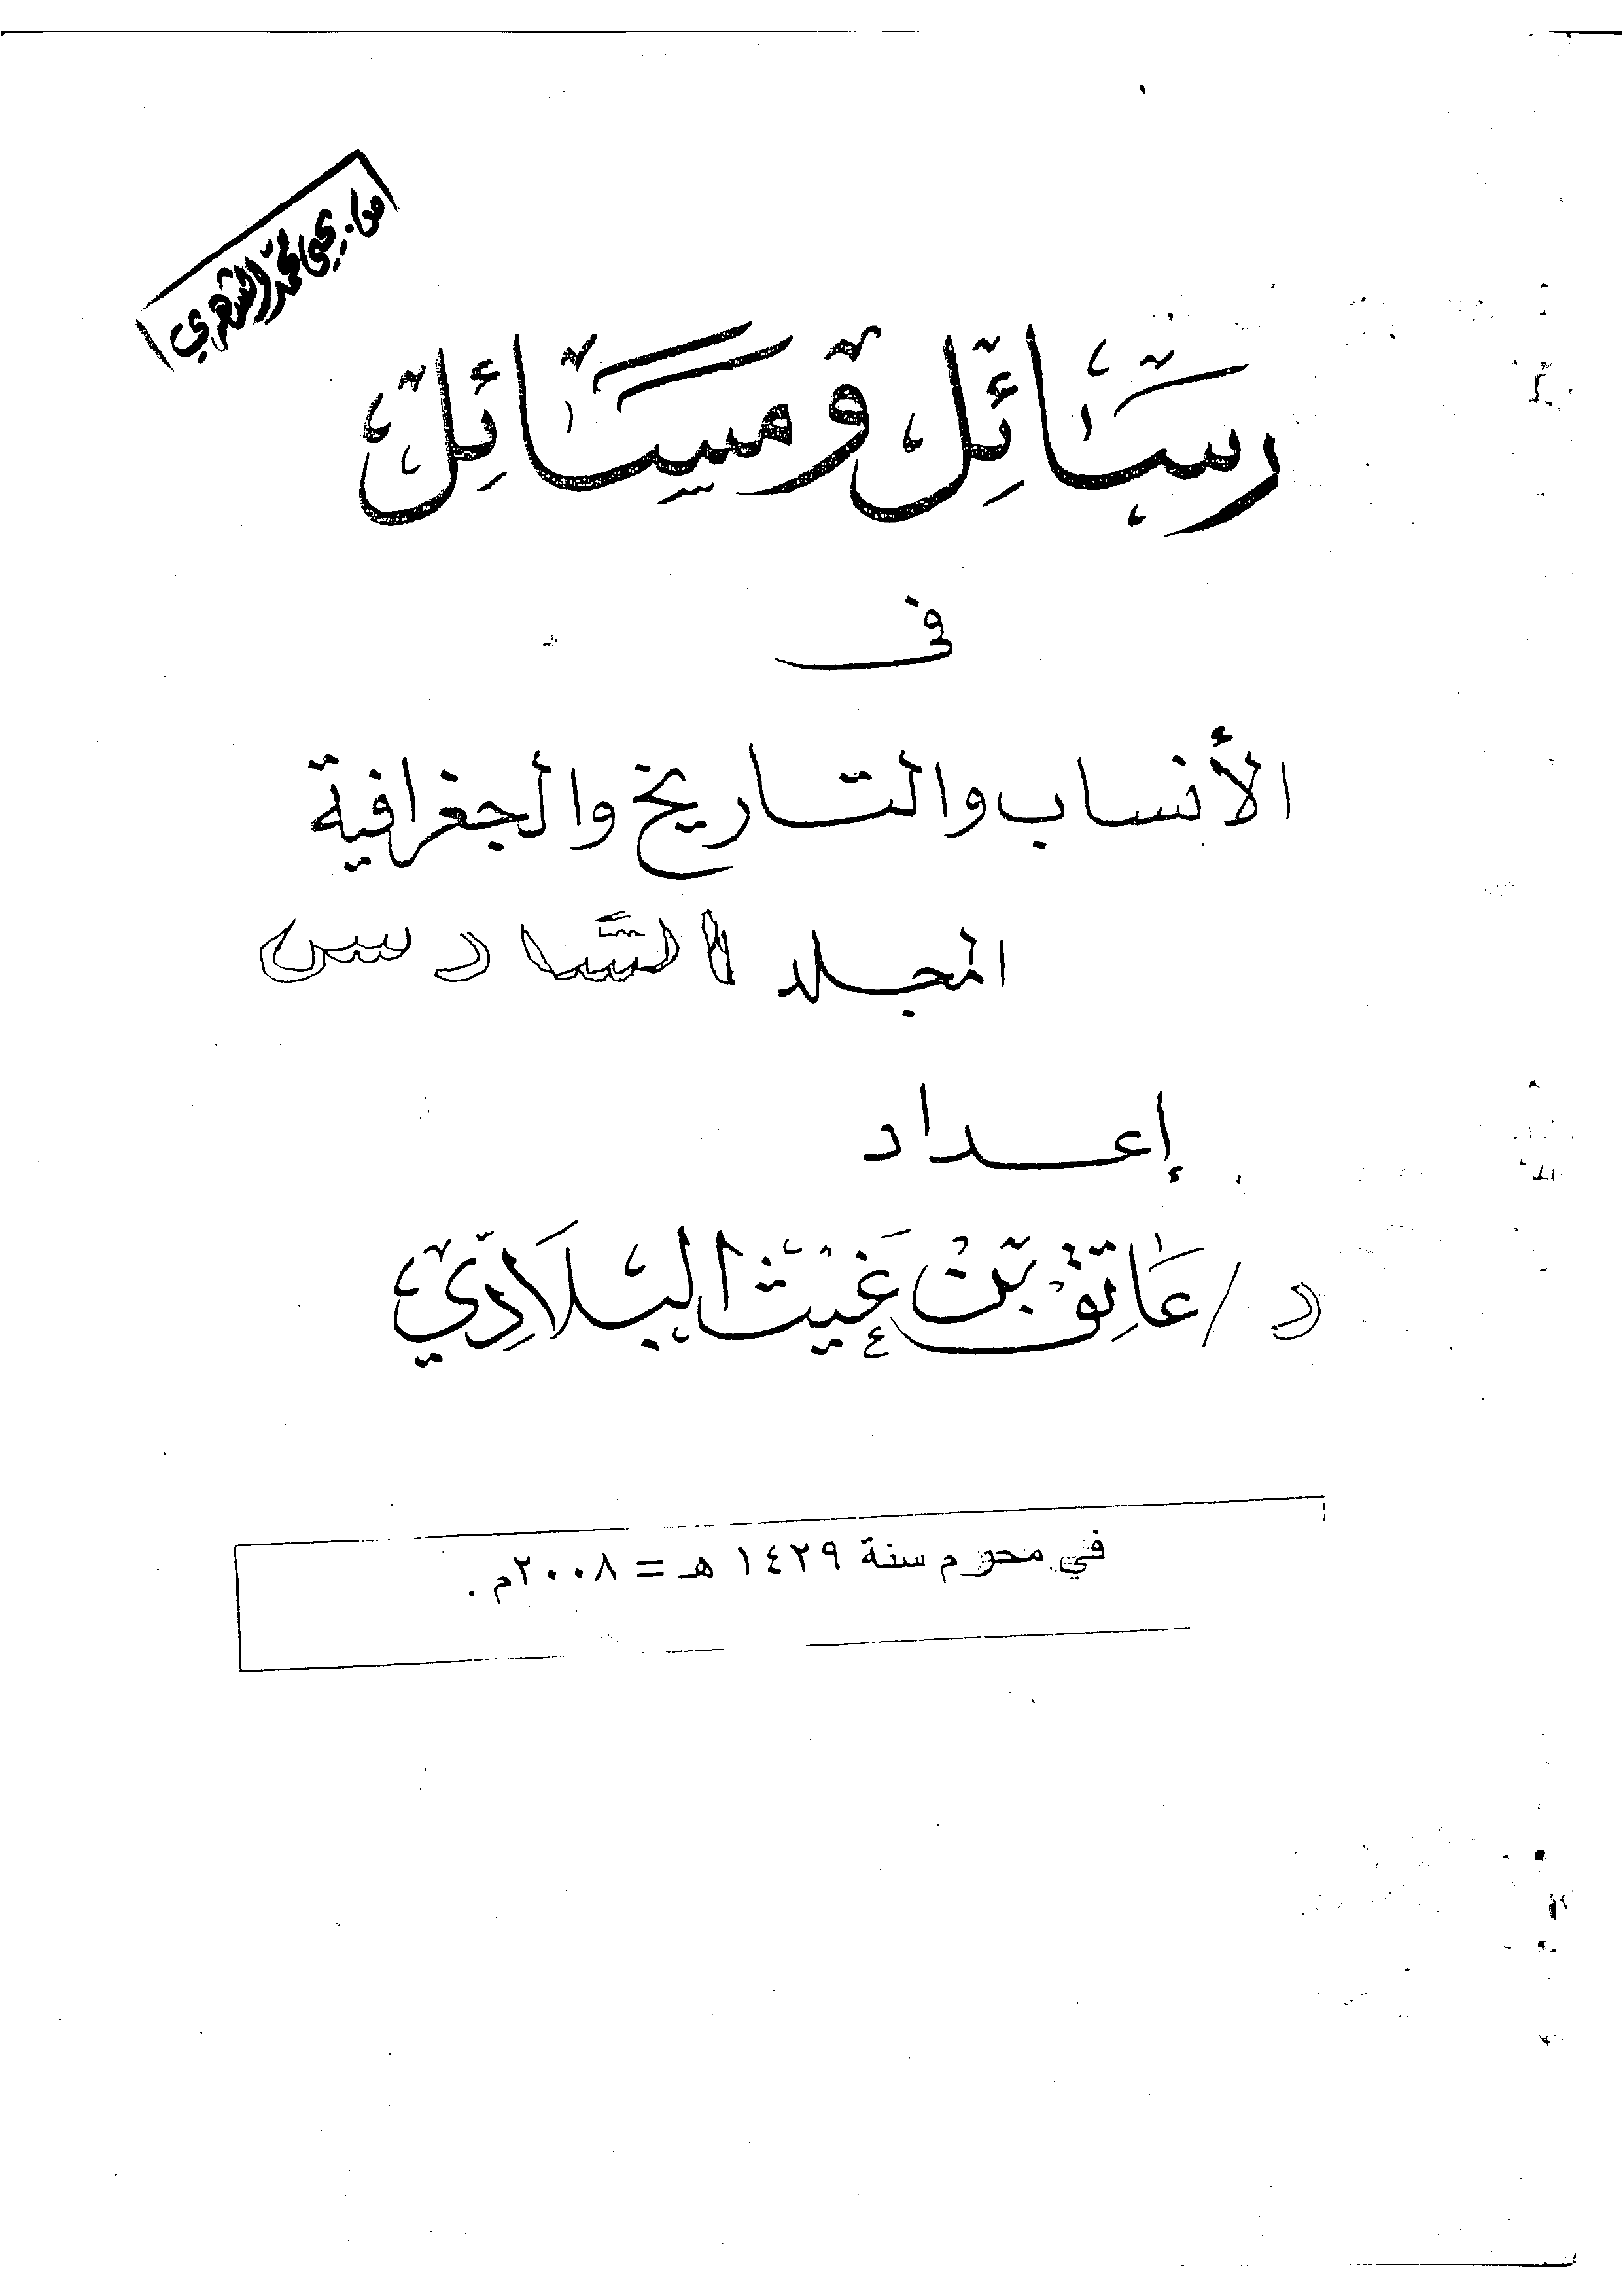 رَسَائِل وَمَسَائِل
فى
الأنساب والتاريخ والجغرافية
المجلد السَّادس
إعداد
د/ عَاتِق بْن غَيْث البَلَادِيّ
في محرم سنة ١٤٢٩ هـ = ٢٠٠٨م.